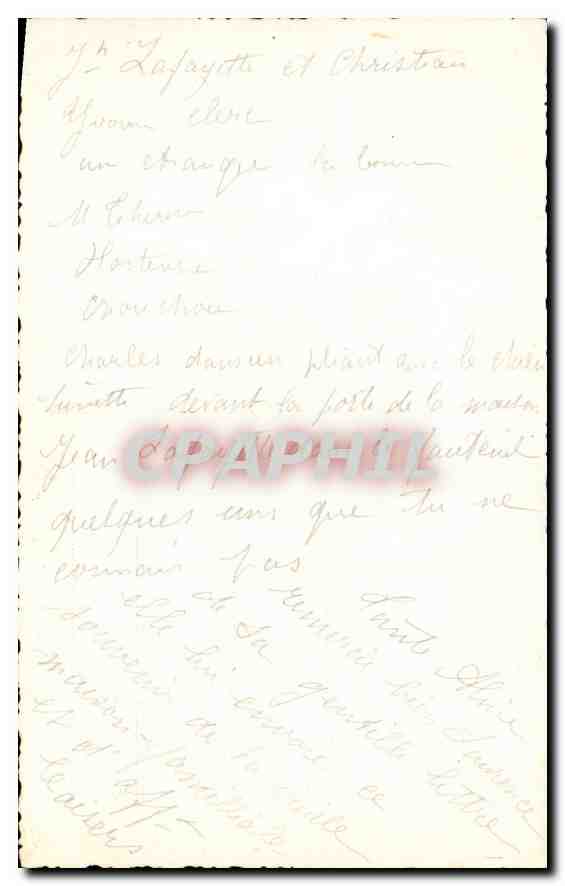 Jn Lafayette et Christian
Yvonne Clerc
un étranger la bonne
M Therese
Hortense
Chouchou
Charles dans un pliant avec le chien
devant la porte de la maison
Jean Lafayette dans le fauteuil
quelques uns que tu ne
connais pas
Tante Alice
remercie bien Laurence
de sa gentille lettre
elle lui envoie ce
souvenir de la vieille
maison familliale
et d' aff
baisers
CPAPHIL